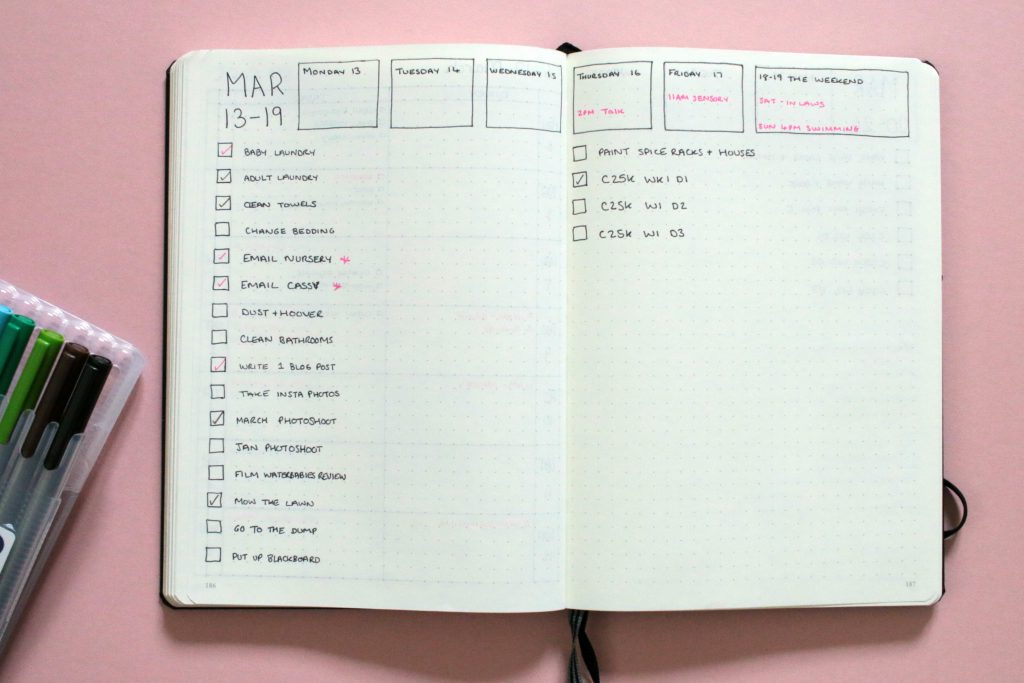 MAR
13-19
MONDAY 13
TUESDAY 14
WEDNESDAY 15
THURSDAY 16
2PM TALK
FRIDAY 17
11AM SENSORY
18-19 THE WEEKEND
SAT - IN LAWS
SUN 4PM SWIMMING
BABY LAUNDRY
ADULT LAUNDRY
CLEAN TOWELS
CHANGE BEDDING
EMAIL NURSERY *
EMAIL CASSY *
DUST + HOOVER
CLEAN BATHROOMS
WRITE 1 BLOG POST
TAKE INSTA PHOTOS
MARCH PHOTOSHOOT
JAN PHOTOSHOOT
FILM WATERBABIES REVIEW
MOW THE LAWN
GO TO THE DUMP
PUT UP BLACKBOARD
186
PAINT SPICE RACKS + HOUSES
C25K WK1 D1
C25K W1 D2
C25K W1 D3
187